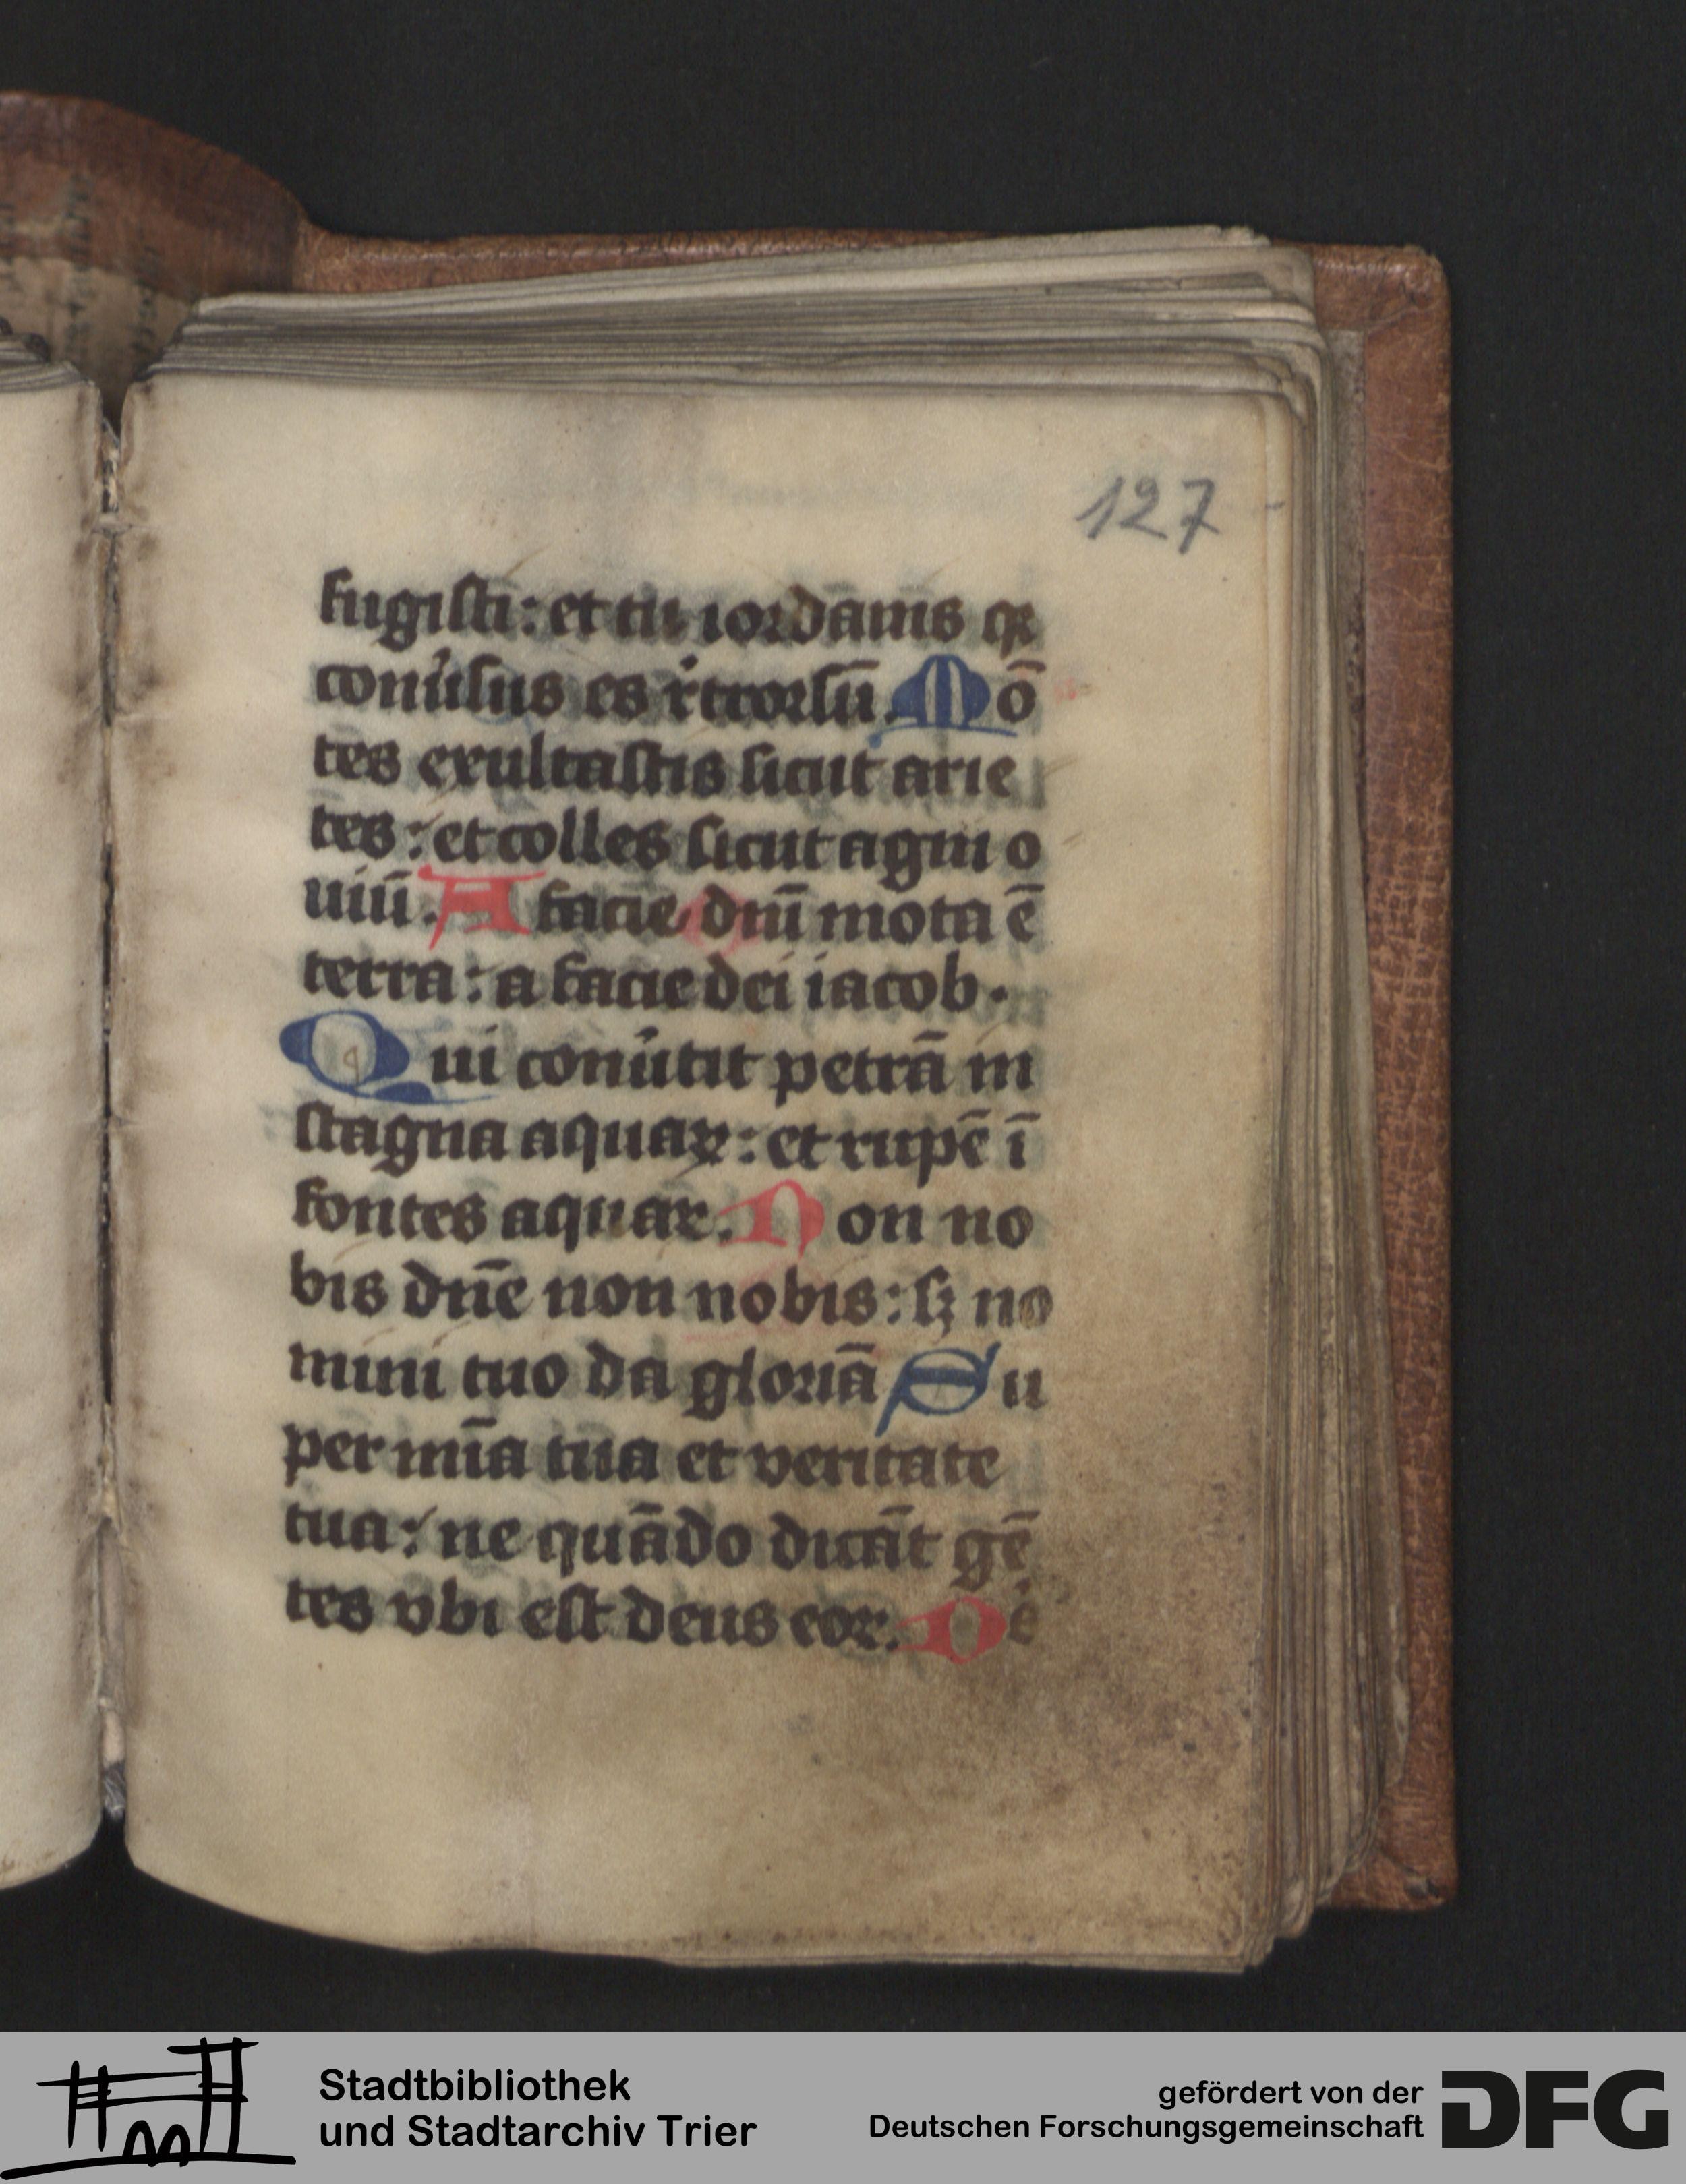 127
fugisti: et tu iordanis qꝛ
conu̓sus es r̓trorsū. Mō
tes exultastis sicut arie
tes: et colles sicut agni o
uiū. A facie dn̄i mota ē
terra: a facie dei iacob.
Qui conu̓tit petrā in
stagna aquaꝝ: et rupē ī
fontes aquaꝝ. Non no
bis dn̄e non nobis: sꝫ no
mini tuo da gloriā Su
per mīa tua et veritate
tua: ne quādo dicāt gē
tes vbi est deus eoꝝ. De
Stadtbibliothek
und Stadtarchiv Trier
gefördert von der
Deutschen Forschungsgemeinschaft
DFG